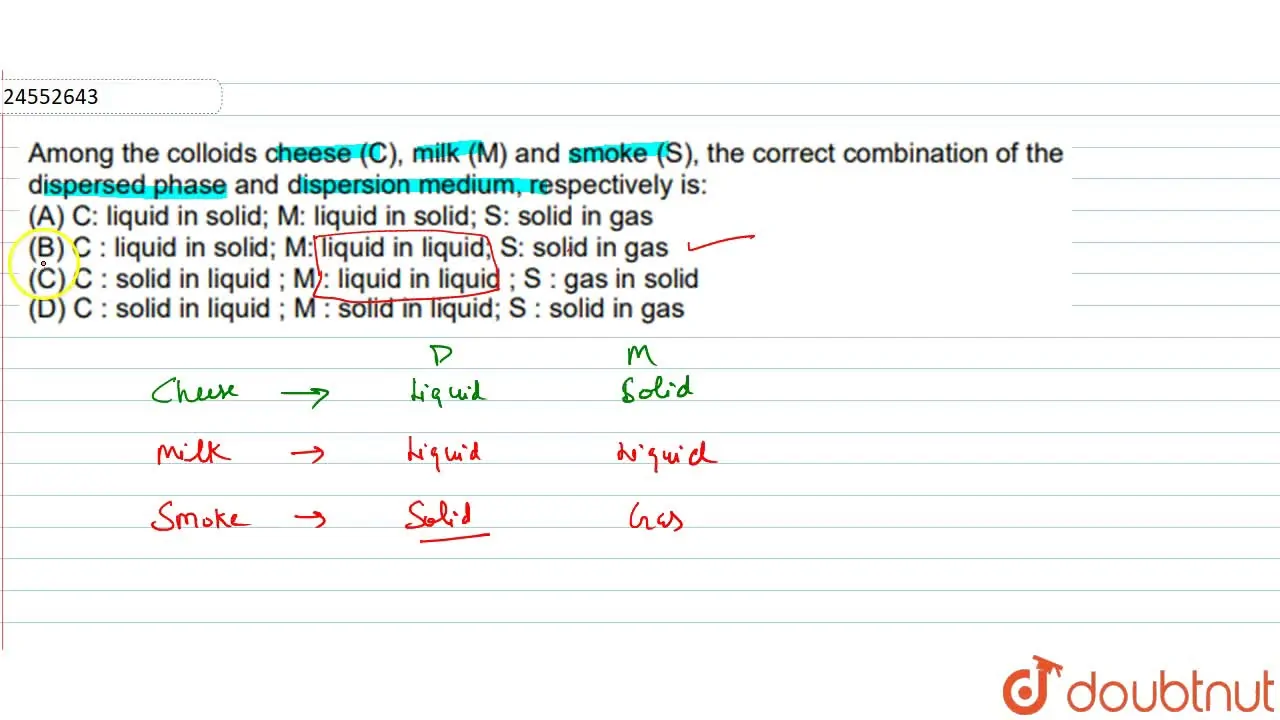 24552643
Among the colloids cheese (C), milk (M) and smoke (S), the correct combination of the
dispersed phase and dispersion medium, respectively is:
(A) C: liquid in solid; M: liquid in solid; S: solid in gas
(B) C : liquid in solid; M: liquid in liquid; S: solid in gas
(C) C : solid in liquid ; M : liquid in liquid ; S : gas in solid
(D) C : solid in liquid ; M : solid in liquid; S : solid in gas
D M
Cheese → Liquid Solid
Milk → Liquid Liquid
Smoke → Solid Gas
doubtnut